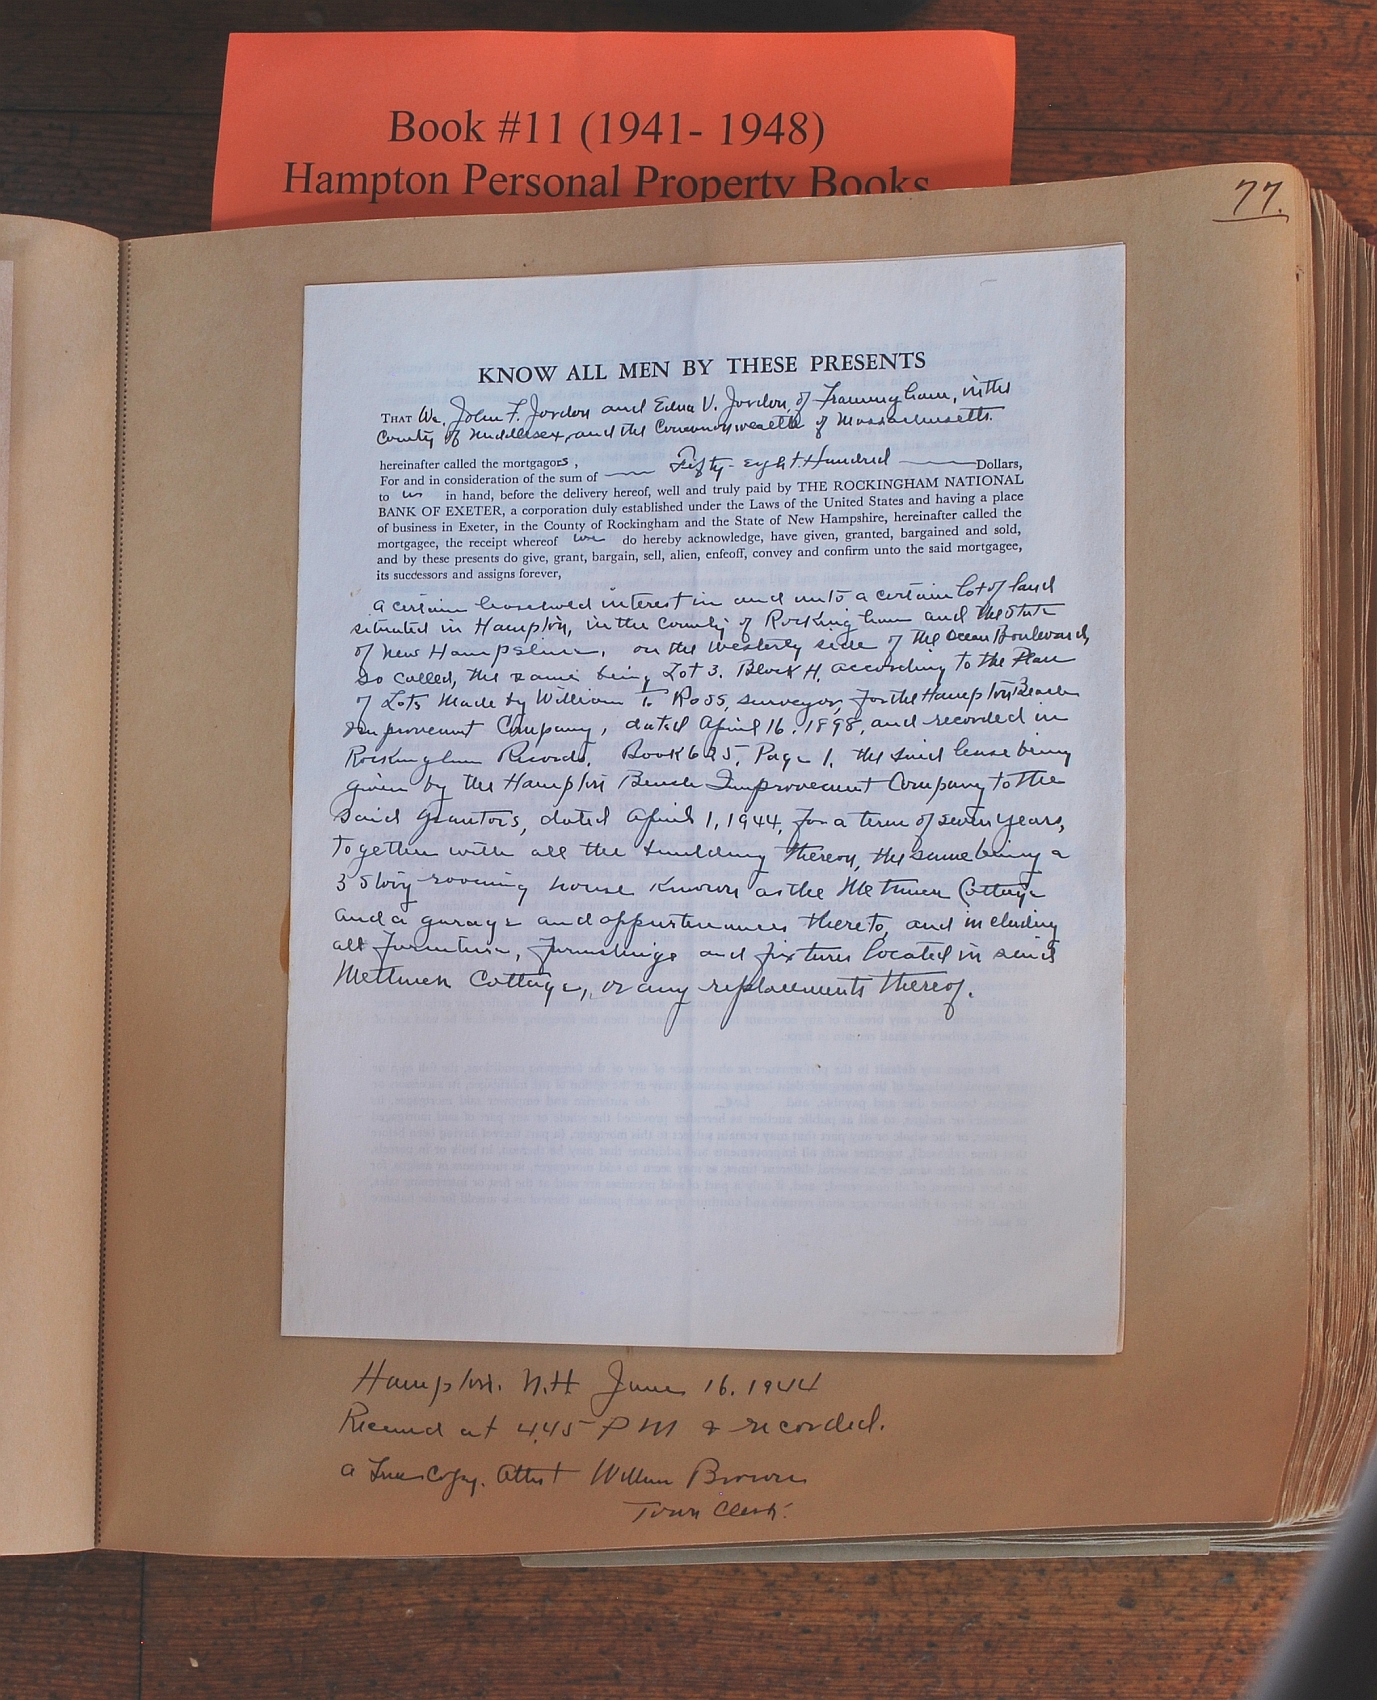 Book #11 (1941- 1948)
Hampton Personal Property Books
77.
KNOW ALL MEN BY THESE PRESENTS
THAT We, John F. Jordon and Edna V. Jordon, of Framingham, in the
County of Middlesex, and the Commonwealth of Massachusetts.
hereinafter called the mortgagors,
For and in consideration of the sum of Fifty-eight Hundred Dollars,
to us in hand, before the delivery hereof, well and truly paid by THE ROCKINGHAM NATIONAL
BANK OF EXETER, a corporation duly established under the Laws of the United States and having a place
of business in Exeter, in the County of Rockingham and the State of New Hampshire, hereinafter called the
mortgagee, the receipt whereof we do hereby acknowledge, have given, granted, bargained and sold,
and by these presents do give, grant, bargain, sell, alien, enfeoff, convey and confirm unto the said mortgagee,
its successors and assigns forever,
a certain leasehold interest in and unto a certain lot of land
situated in Hampton, in the County of Rockingham and the State
of New Hampshire, on the westerly side of the Ocean Boulevard,
so called, the same being Lot 3. Block H, according to the Plan
of Lots made by William T. Ross, surveyor, for the Hampton Beach
Improvement Company, dated April 16, 1898, and recorded in
Rockingham Records, Book 625, Page 1, the said lease being
given by the Hampton Beach Improvement Company to the
said grantors, dated April 1, 1944, for a term of seven years,
together with all the building thereon, the same being a
3 story rooming house known as the Methuen Cottage
and a garage and appurtenances thereto, and including
all furniture, furnishings and fixtures located in said
Methuen Cottage, or any replacements thereof.
Hampton. N.H June 16. 1944
Received at 4.45 PM & recorded.
a True Copy. Attest William Brown
Town Clerk.